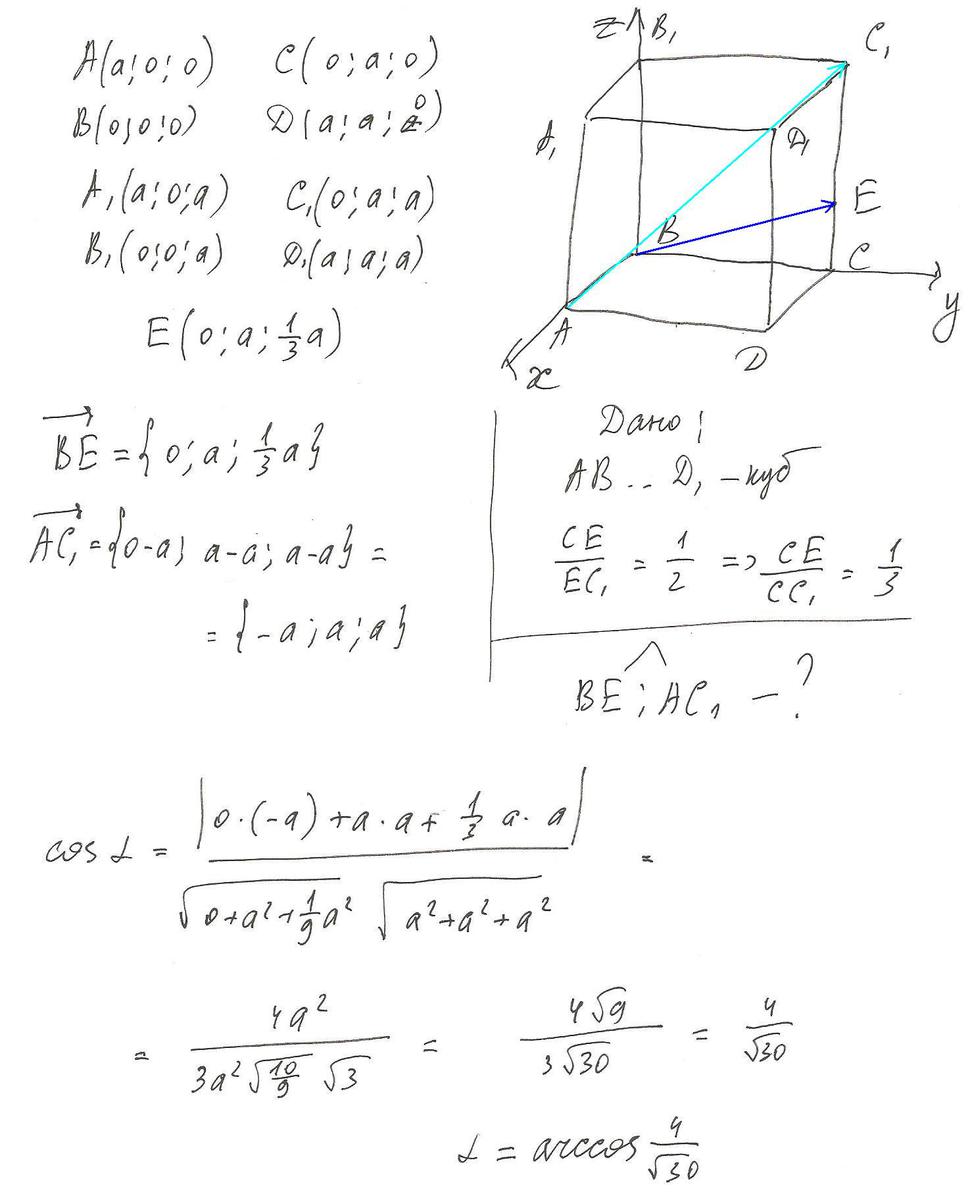 A(a;0;0) C(0;a;0)
B(0;0;0) D(a;a;0)
A₁(a;0;a) C₁(0;a;a)
B₁(0;0;a) D₁(a;a;a)
E(0;a;1/3 a)
z B₁ C₁
A₁ D₁
B E
C
A D
x y
BE = {0;a;1/3 a}
AC₁ = {0-a; a-a; a-a} =
= {-a;a;a}
Дано:
AB..D₁ - куб
CE/EC₁ = 1/2 => CE/CC₁ = 1/3
BE;AC₁ - ?
cos α = |0·(-a)+a·a+1/3 a·a| / √(0+a²+1/9 a²) √(a²+a²+a²) =
= 4a² / 3a²√(10/9) √3 = 4√9 / 3√30 = 4/√30
α = arccos 4/√30